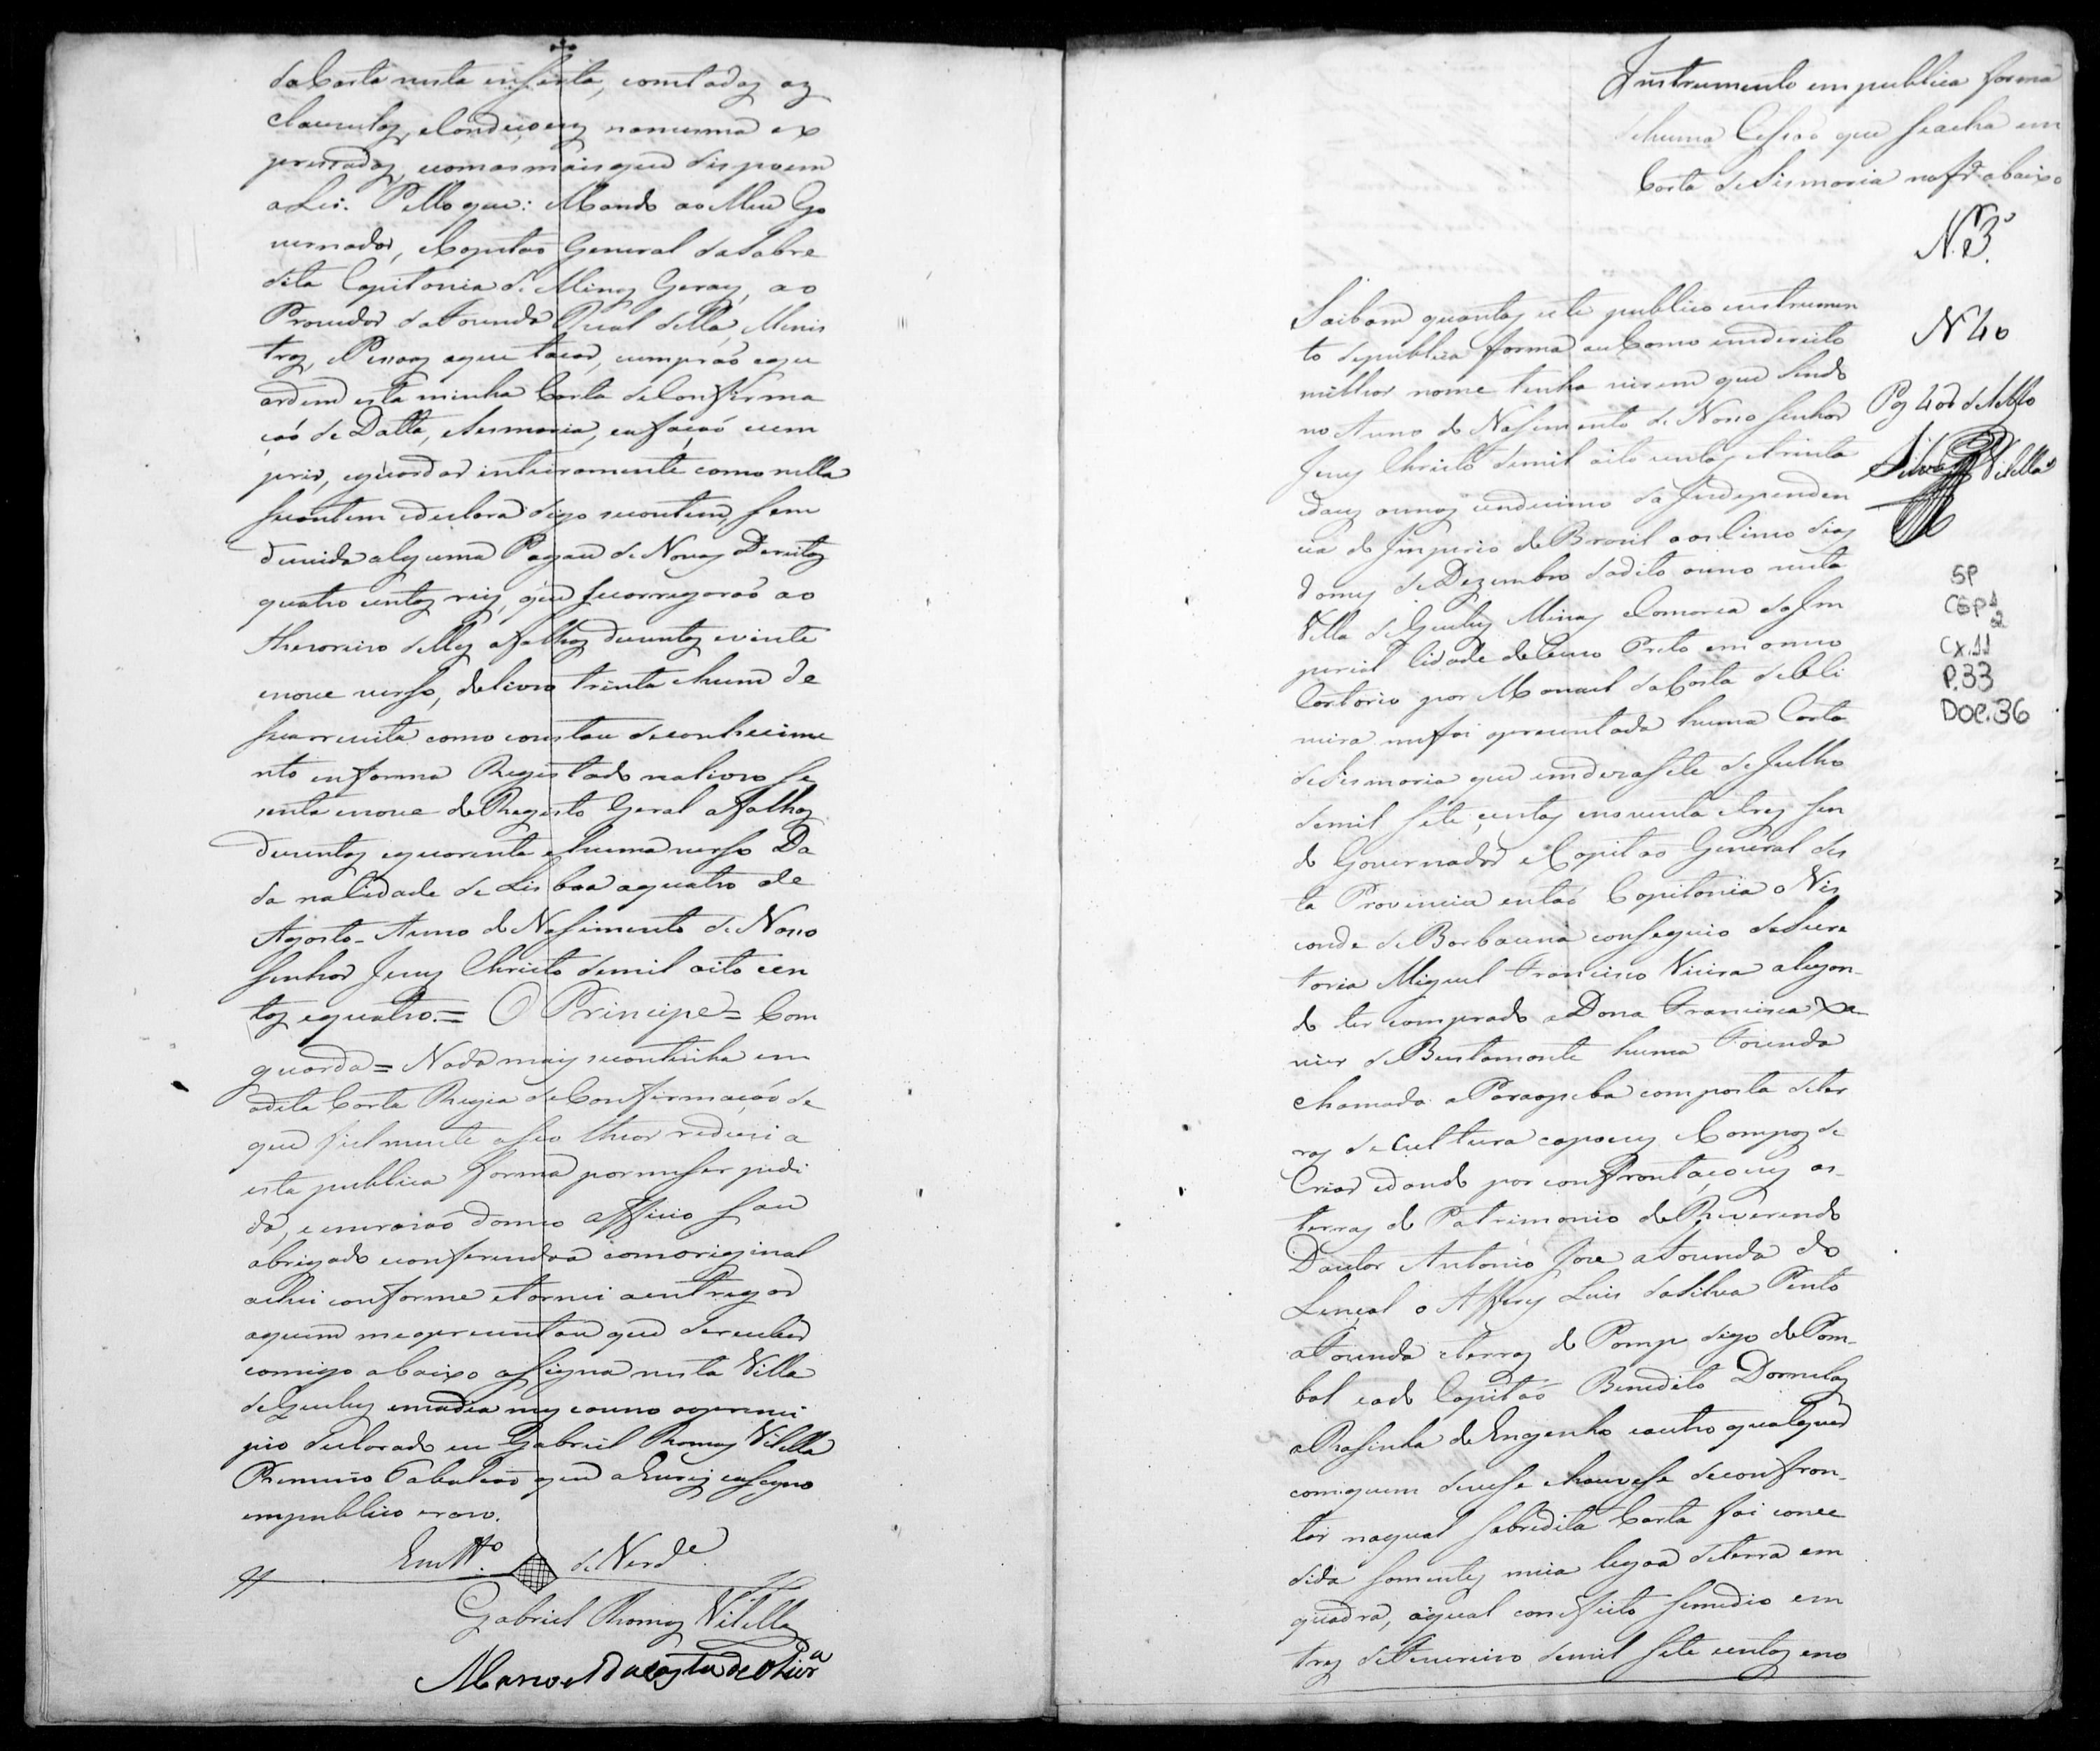 da Carta nesta enserta, com todaz az
clauzulaz, e Condiçoens na mesma ex
pressadaz, e com as mais que dispoem
a Lei. Pello que: Mando ao Meu Go
vernador, e Capitaõ General da Sobre
dita Capitania de Minaz Geraez, ao
Provedor da Fazenda Real della, Minis
troz, e Pessoaz a que tocar, cumpraõ e gu
ardem esta minha Carta de Confirma
çaõ de Datta, e Sesmaria, e a façaõ cum
prir, e guardar inteiramente como nella
se contem e declara digo se contem, sem
duvida alguma Pagou de Novoz Direitoz
quatro centoz reiz, que se carregaraõ ao
Thezoreiro dellez a folhaz duzentaz e vinte
e nove verso, do livro trinta e hum de
sua receita como constou de conhecime
nto em forma Registado no livro se
senta e nove do Registo Geral a folhaz
duzentaz e quarenta e huma verso Da
da na Cidade de Lisboa a quatro de
Agosto Anno do Nasimento de Nosso
Senhor Jezuz Christo de mil oito cen
toz e quatro. = O Principe = Com
guarda = Nada maiz se continha em
a dita Carta Regia de Confirmaçaõ de
que fielmente a seo theor reduzi a
esta publica forma por me ser pedi
da, e em razaõ do meo officio sou
obrigado e conferindo a com original
achei conforme e tornei a entregar
a quem me aprezentou que de receber
comigo abaixo assigna nesta Villa
de Queluz em o dia mez e anno ao princi
pio declarado eu Gabriel Ramoz Vilella
Primeiro Tabaliaõ que a Escrevi e assigno
em publico e razo.
Em Tt.º de Verd.e
Gabriel Ramoz Vilella
Manoel da Costa de Olivr.a
Instrumento em publica forma
de huma Cessaõ que se acha em
Carta de Sismaria na f.ª abaixo
N.º 3.
N 40
Pg 40 de Sello
Silva Vilella
SP
CGP 1
2
Cx. 11
P. 33
DOC. 36
Saibam quantoz este publico instrumen
to de publica forma ou Como em direito
milhor nome tenha virem que sendo
no Anno do Nasimento de Nosso Senhor
Jezuz Christo de mil oito centoz e trinta
e douz annoz undecimo da Independen
cia do Imperio do Brazil aos Cinco diaz
do mez de Dezembro do dito anno nesta
Villa de Queluz Minaz e Comarca da Im
perial Cidade do Ouro Preto em o meo
Cartorio por Manoel da Costa de Oli
veira me foi aprezentada huma Carta
de Sismaria que em dezasete de Julho
de mil sete centoz e noventa e trez sen
do Governador e Capitaõ General des
ta Provincia entaõ Capitania o Vis
conde de Barbacena conseguio da Secre
taria Miguel Francisco Vieira alegan-
do ter comprado a Dona Francisca Xa-
vier de Bustamante huma Fazenda
chamada a Paraopeba composta de ter
raz de Cultura capoenz e Campoz de
Criar e dando por confrontaçoenz as
terraz do Patrimonio do Reverendo
Doutor Antonio Jose a Fazenda do
Lençol o Alferez Luis da Silva Pinto
a Fazenda e terraz do Pomp digo do Pom-
bal e a do Capitaõ Benedito Dornelaz
a Rosinha do Engenho e outro qualquer
com quem devese e houvese de confron-
tar na qual sobredita Carta foi conce
dida somente meia legoa de terra em
quadra, a qual com efeito se medio em
trez de Fevereiro de mil sete centoz e no